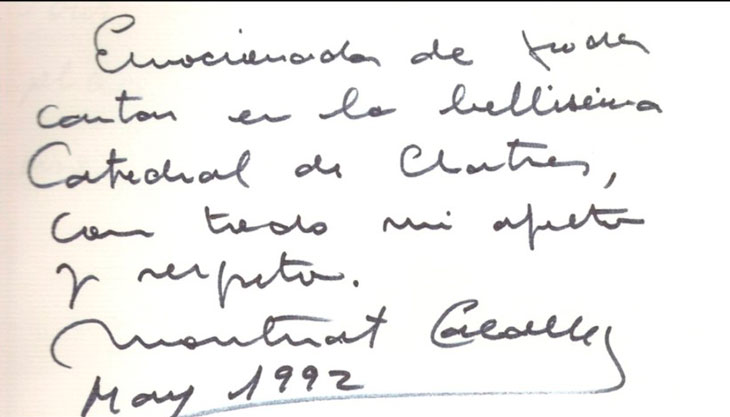 Emocionada de poder
cantar en la bellisima
Catedral de Chartres,
con todo mi afecto
y respeto.
Montserrat Caballé
May 1992